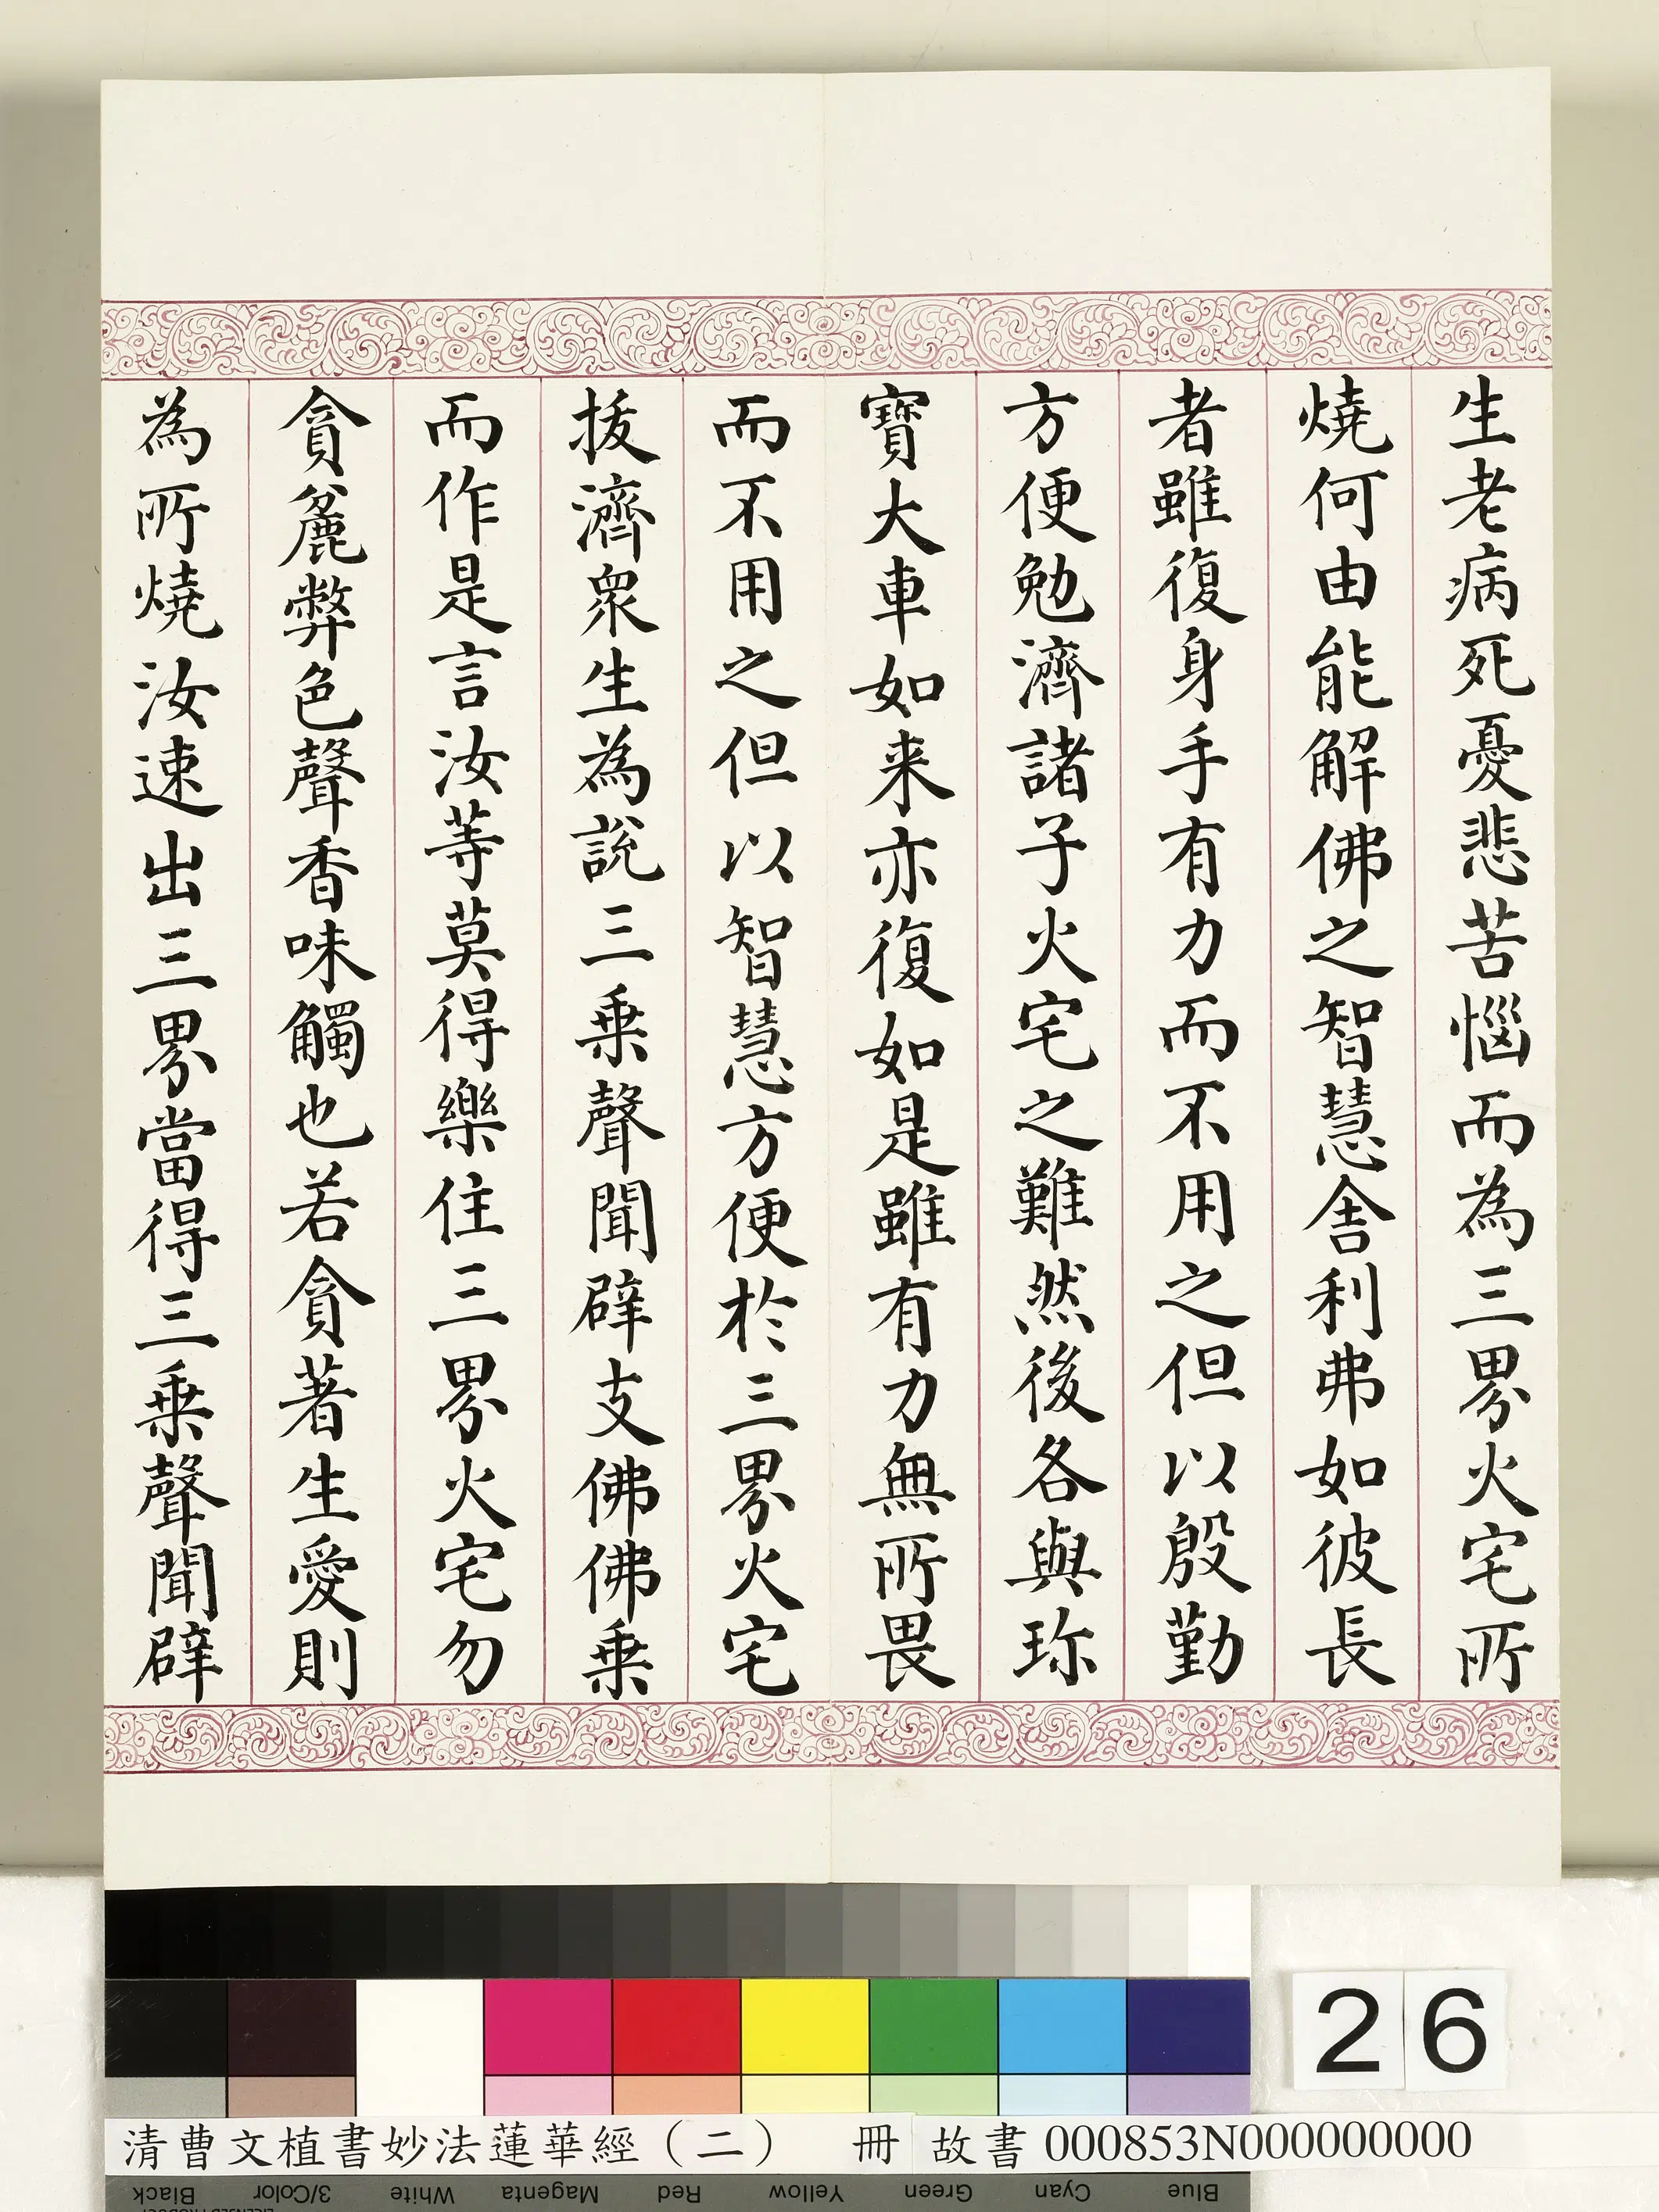 生老病死憂悲苦惱而為三界火宅所
燒何由能解佛之智慧舍利弗如彼長
者雖復身手有力而不用之但以殷勤
方便勉濟諸子火宅之難然後各與珎
寶大車如来亦復如是雖有力無所畏
而不用之但以智慧方便於三界火宅
拔濟衆生為說三乗聲聞辟支佛佛乗
而作是言汝等莫得樂住三界火宅勿
貪麁弊色聲香味觸也若貪著生愛則
為所燒汝速出三界當得三乗聲聞辟
26
清曹文植書妙法蓮華經（二） 冊 故書 000853N000000000
Blue Cyan Green Yellow Red Magenta White 3/Color Black